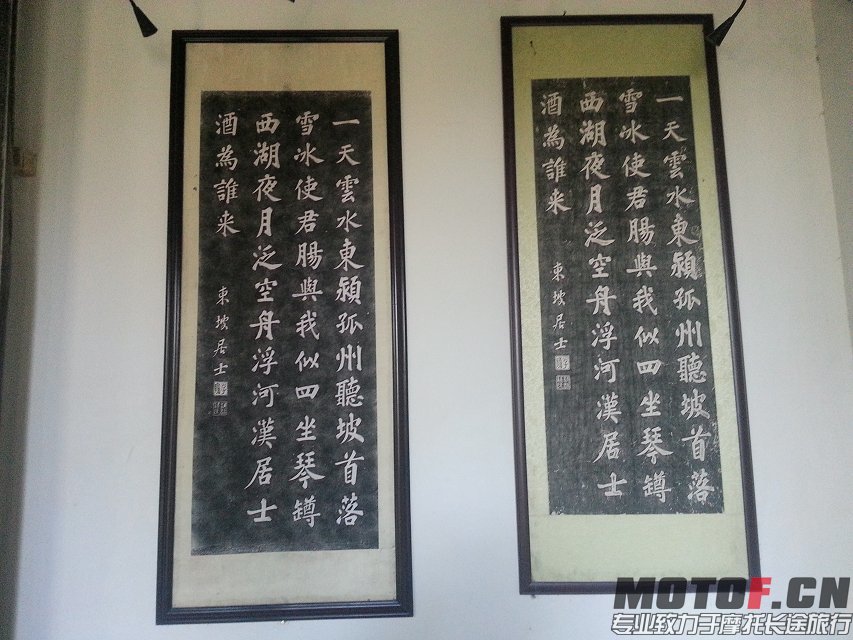 一天雲水東潁孤州聽坡首落
雪冰使君腸與我似四坐琴罇
西湖夜月泛空舟浮河漢居士
酒為誰来
東坡居士
一天雲水東潁孤州聽坡首落
雪冰使君腸與我似四坐琴罇
西湖夜月泛空舟浮河漢居士
酒為誰来
東坡居士
MOTOF.CN
专业致力于摩托长途旅行